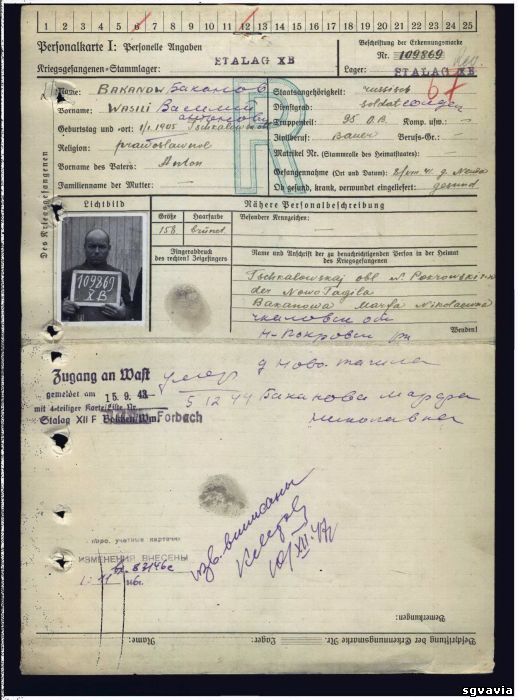 1 2 3 4 5 6 7 8 9 10 11 12 13 14 15 16 17 18 19 20 21 22 23 24 25
Personalkarte I: Personelle Angaben
Beschriftung der Erkennungsmarke
Nr. 109869
Kriegsgefangenen-Stammlager: STALAG XB
Lager: STALAG XB
Des Kriegsgefangenen
Name: BAKANOW Баканов
Staatsangehörigkeit: russisch
Vorname: WASILI Василий
Dienstgrad: soldat солдат
Антонович
Truppenteil: 95 Komp. usw.:
Geburtstag und -ort: 1/I. 1905
Zivilberuf: Bauer Berufs-Gr.:
Religion: prawoslawnoe
Matrikel Nr. (Stammrolle des Heimatstaates):
Vorname des Vaters: Anton
Gefangennahme (Ort und Datum): 2/VIII 41.
Familienname der Mutter:
Ob gesund, krank, verwundet eingeliefert: gesund
R
Lichtbild
Nähere Personalbeschreibung
Größe Haarfarbe Besondere Kennzeichen:
158 brünet
Fingerabdruck
des rechten! Zeigefingers
Name und Anschrift der zu benachrichtigenden Person in der Heimat
des Kriegsgefangenen
109869
XB
Tschkalowskaj obl N. Pokrowski
der Nowo Tagila
Bakanowa Marfa Nikolaewna
Н-Покровск
Wenden!
Zugang an Wast
gemeldet am 15. 9. 43
mit 4-teiliger Karte/Liste Nr.
Stalag XII F Forbach
Умер д Ново-тагила
5 12 44 Баканова Марфа
Николавна
XII. 47
учетные карточки
ИЗМЕНЕНИЯ ВНЕСЕНЫ
Bemerkungen:
Beschriftung der Erkennungsmarke Nr. Lager: Name:
sgvavia